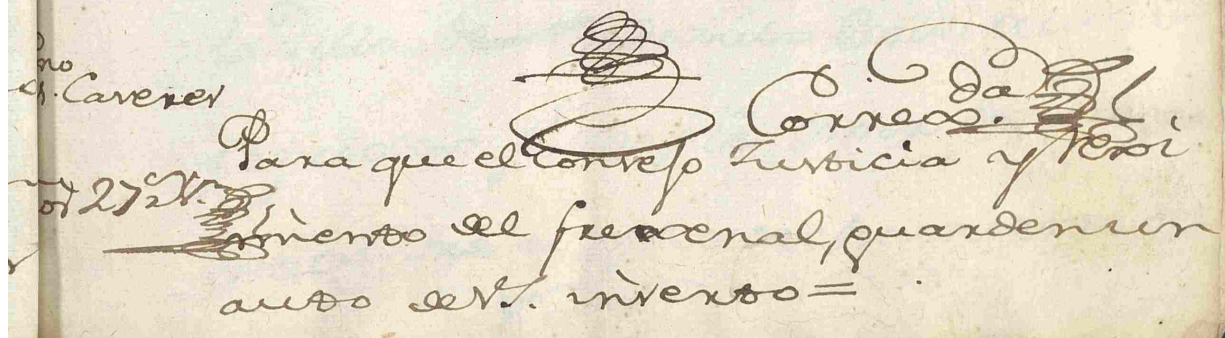 no
Caveres
da
Correxd.
Para que el Consejo Justicia y Rexi
os 27 1/2 Vs.
miento del frexenal, guarden un
auto de Vs. inserto =